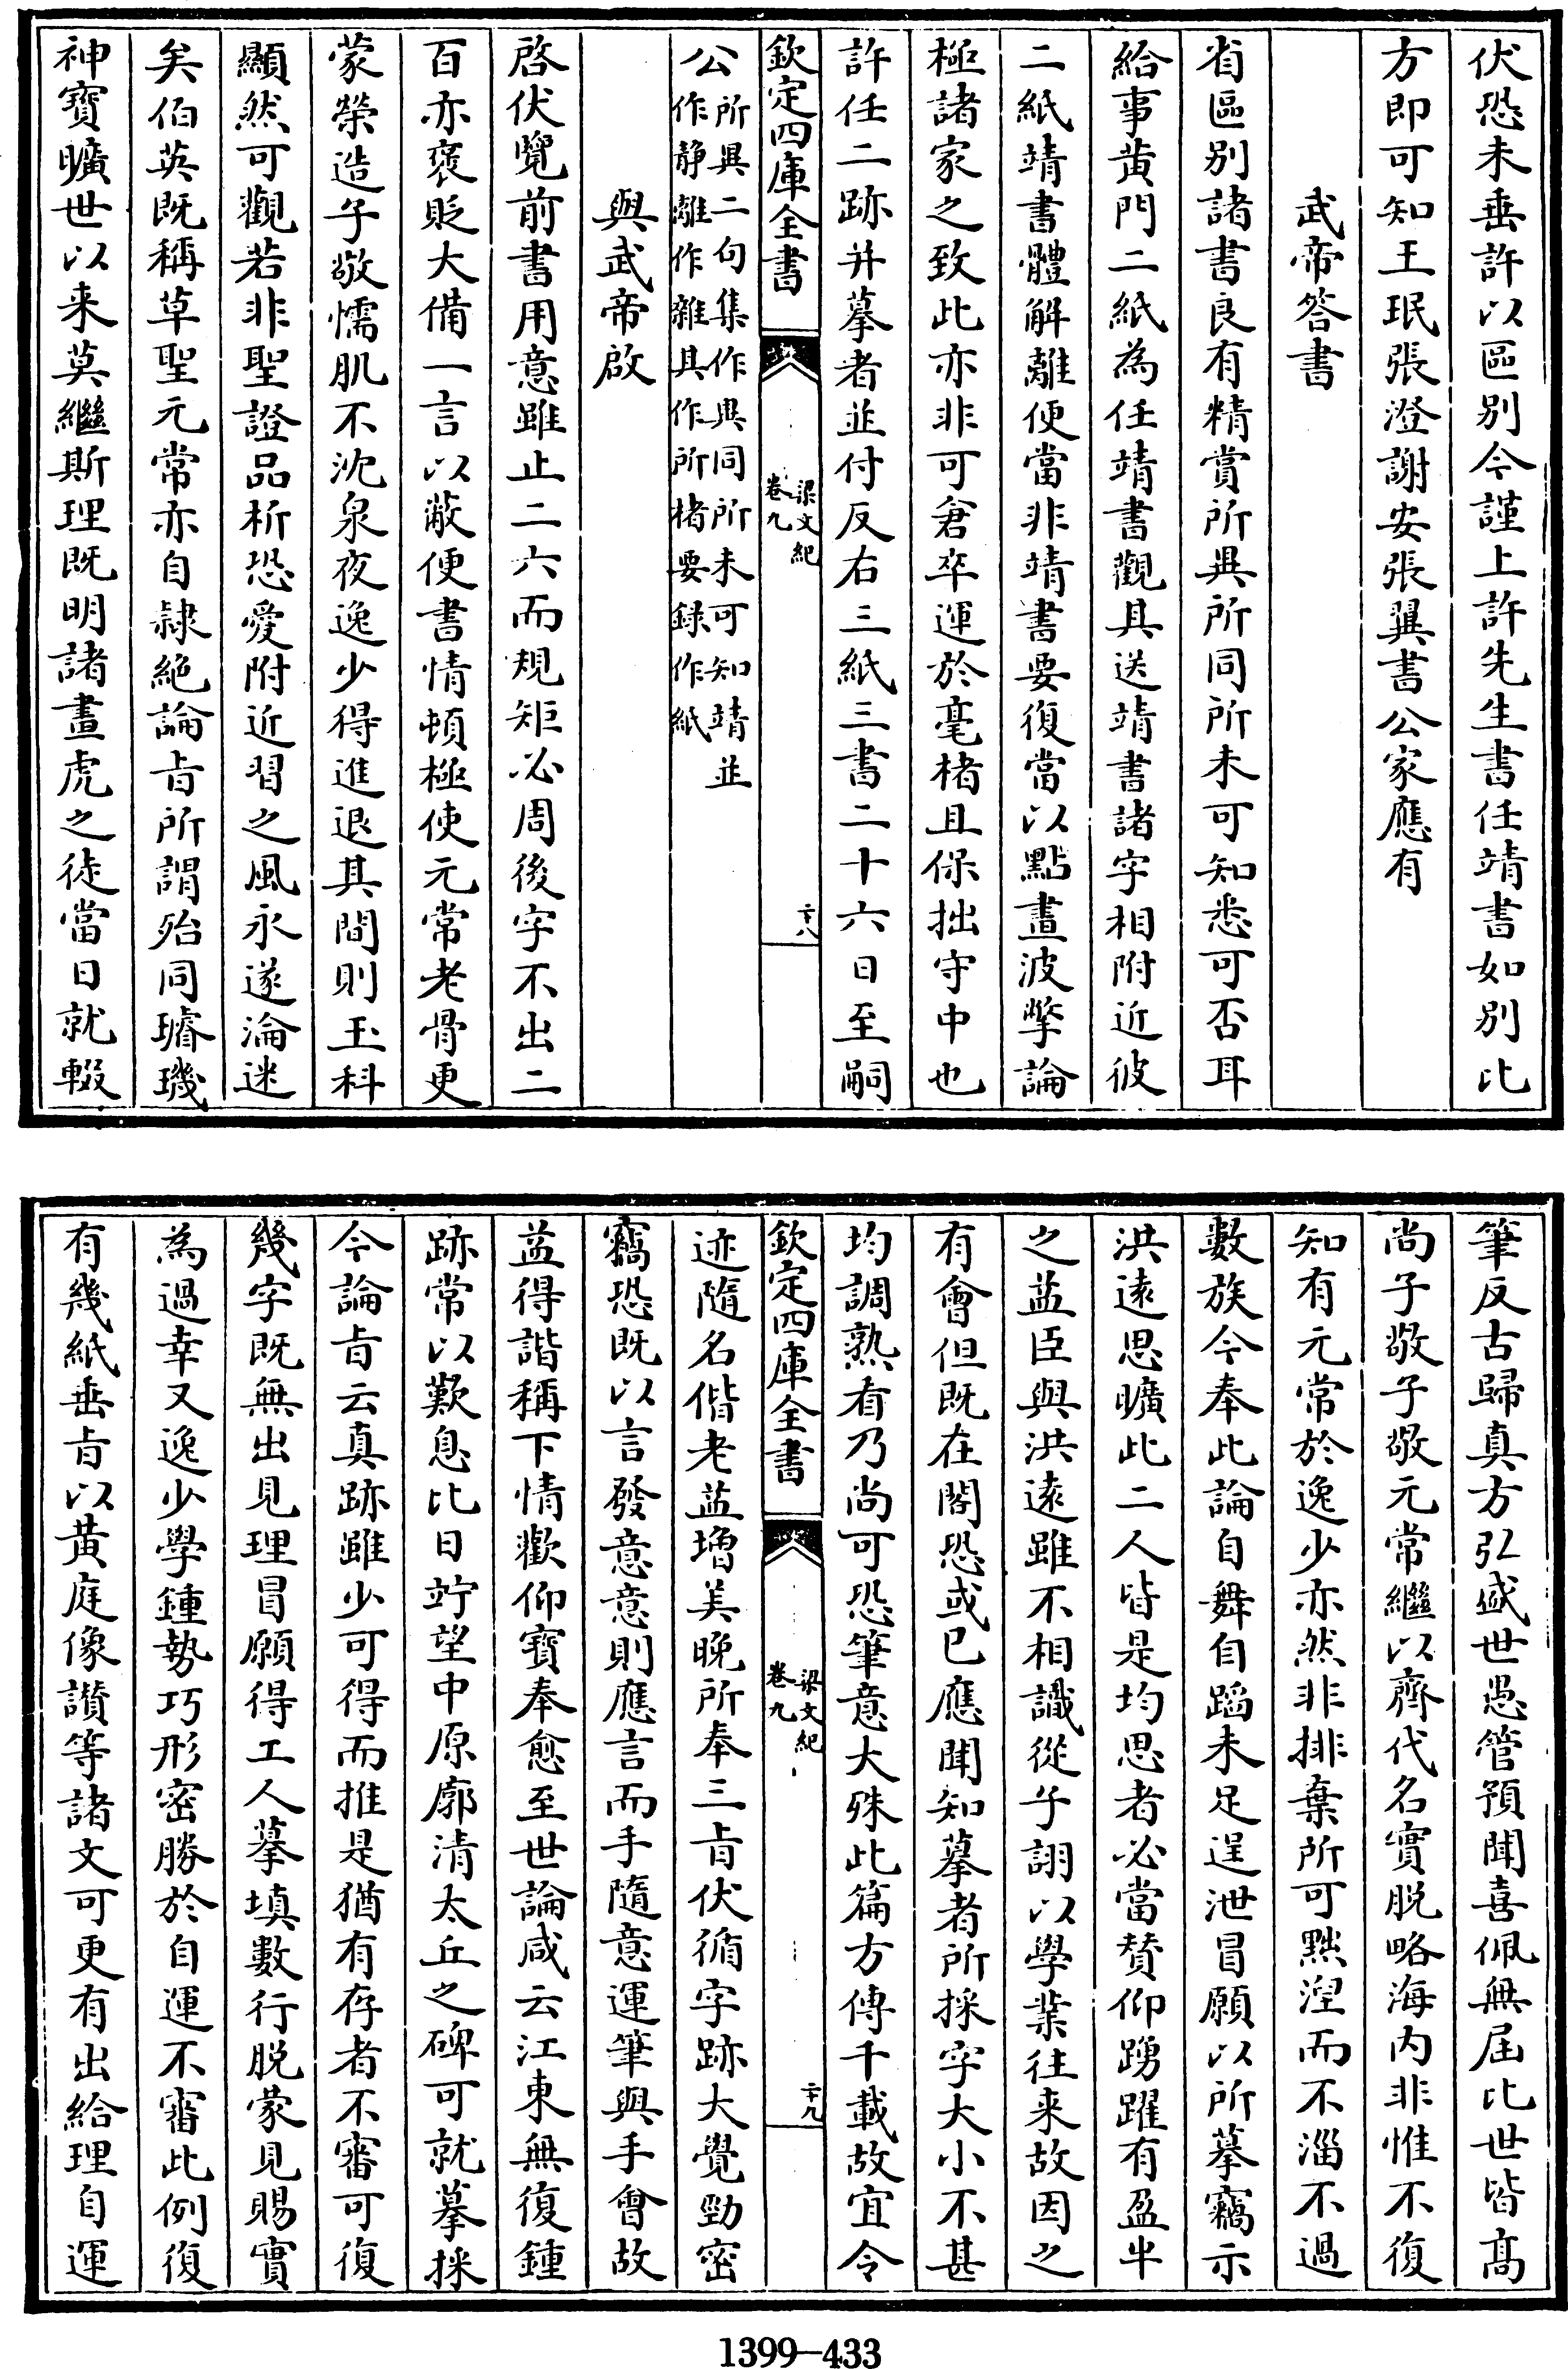 伏恐未垂許以區别今謹上許先生書任靖書如别比
方即可知王珉張澄謝安張翼書公家應有
武帝答書
省區别諸書良有精賞所異所同所未可知悉可否耳
給事黄門二紙為任靖書觀其送靖書諸字相附近彼
二紙靖書體解離便當非靖書要復當以點畫波撆論
極諸家之致此亦非可倉卒運於毫楮且保拙守中也
許任二跡并摹者並付反右三紙三書二十六日至嗣
欽定四庫全書
梁文紀
卷九
二十八
公所異二句集作與同所未可知靖並
作静離作雜其作所楮要録作紙
與武帝啟
啓伏覽前書用意雖止二六而規矩必周後字不出二
百亦褒貶大備一言以蔽便書情頓極使元常老骨更
蒙榮造子敬懦肌不沈泉夜逸少得進退其間則玉科
顯然可觀若非聖證品析恐愛附近習之風永遂淪迷
矣伯英既稱草聖元常亦自隷絶論㫖所謂殆同璿璣
神寶曠世以来莫繼斯理既明諸畫虎之徒當日就輟
筆反古歸真方弘盛世愚管預聞喜佩無屆比世皆髙
尚子敬子敬元常繼以齊代名實脱略海内非惟不復
知有元常於逸少亦然非排棄所可黙涅而不淄不過
數族今奉此論自舞自蹈未足逞泄冒願以所摹竊示
洪逺思曠此二人皆是均思者必當賛仰踴躍有盈半
之益臣與洪逺雖不相識從子詡以學業往来故因之
有會但既在閣恐或已應聞知摹者所採字大小不甚
均調熟看乃尚可恐筆意大殊此篇方傳千載故宜令
欽定四庫全書
梁文紀
卷九
二十九
迹隨名偕老益増美晩所奉三㫖伏循字跡大覺勁密
竊恐既以言發意意則應言而手隨意運筆與手會故
益得諧稱下情歡仰寳奉愈至世論咸云江東無復鍾
跡常以歎息比日竚望中原廓清太丘之碑可就摹採
今論㫖云真跡雖少可得而推是猶有存者不審可復
幾字既無出見理冒願得工人摹填數行脱蒙見賜實
為過幸又逸少學鍾勢巧形密勝於自運不審此例復
有幾紙垂㫖以黄庭像讃等諸文可更有出給理自運
1399—433